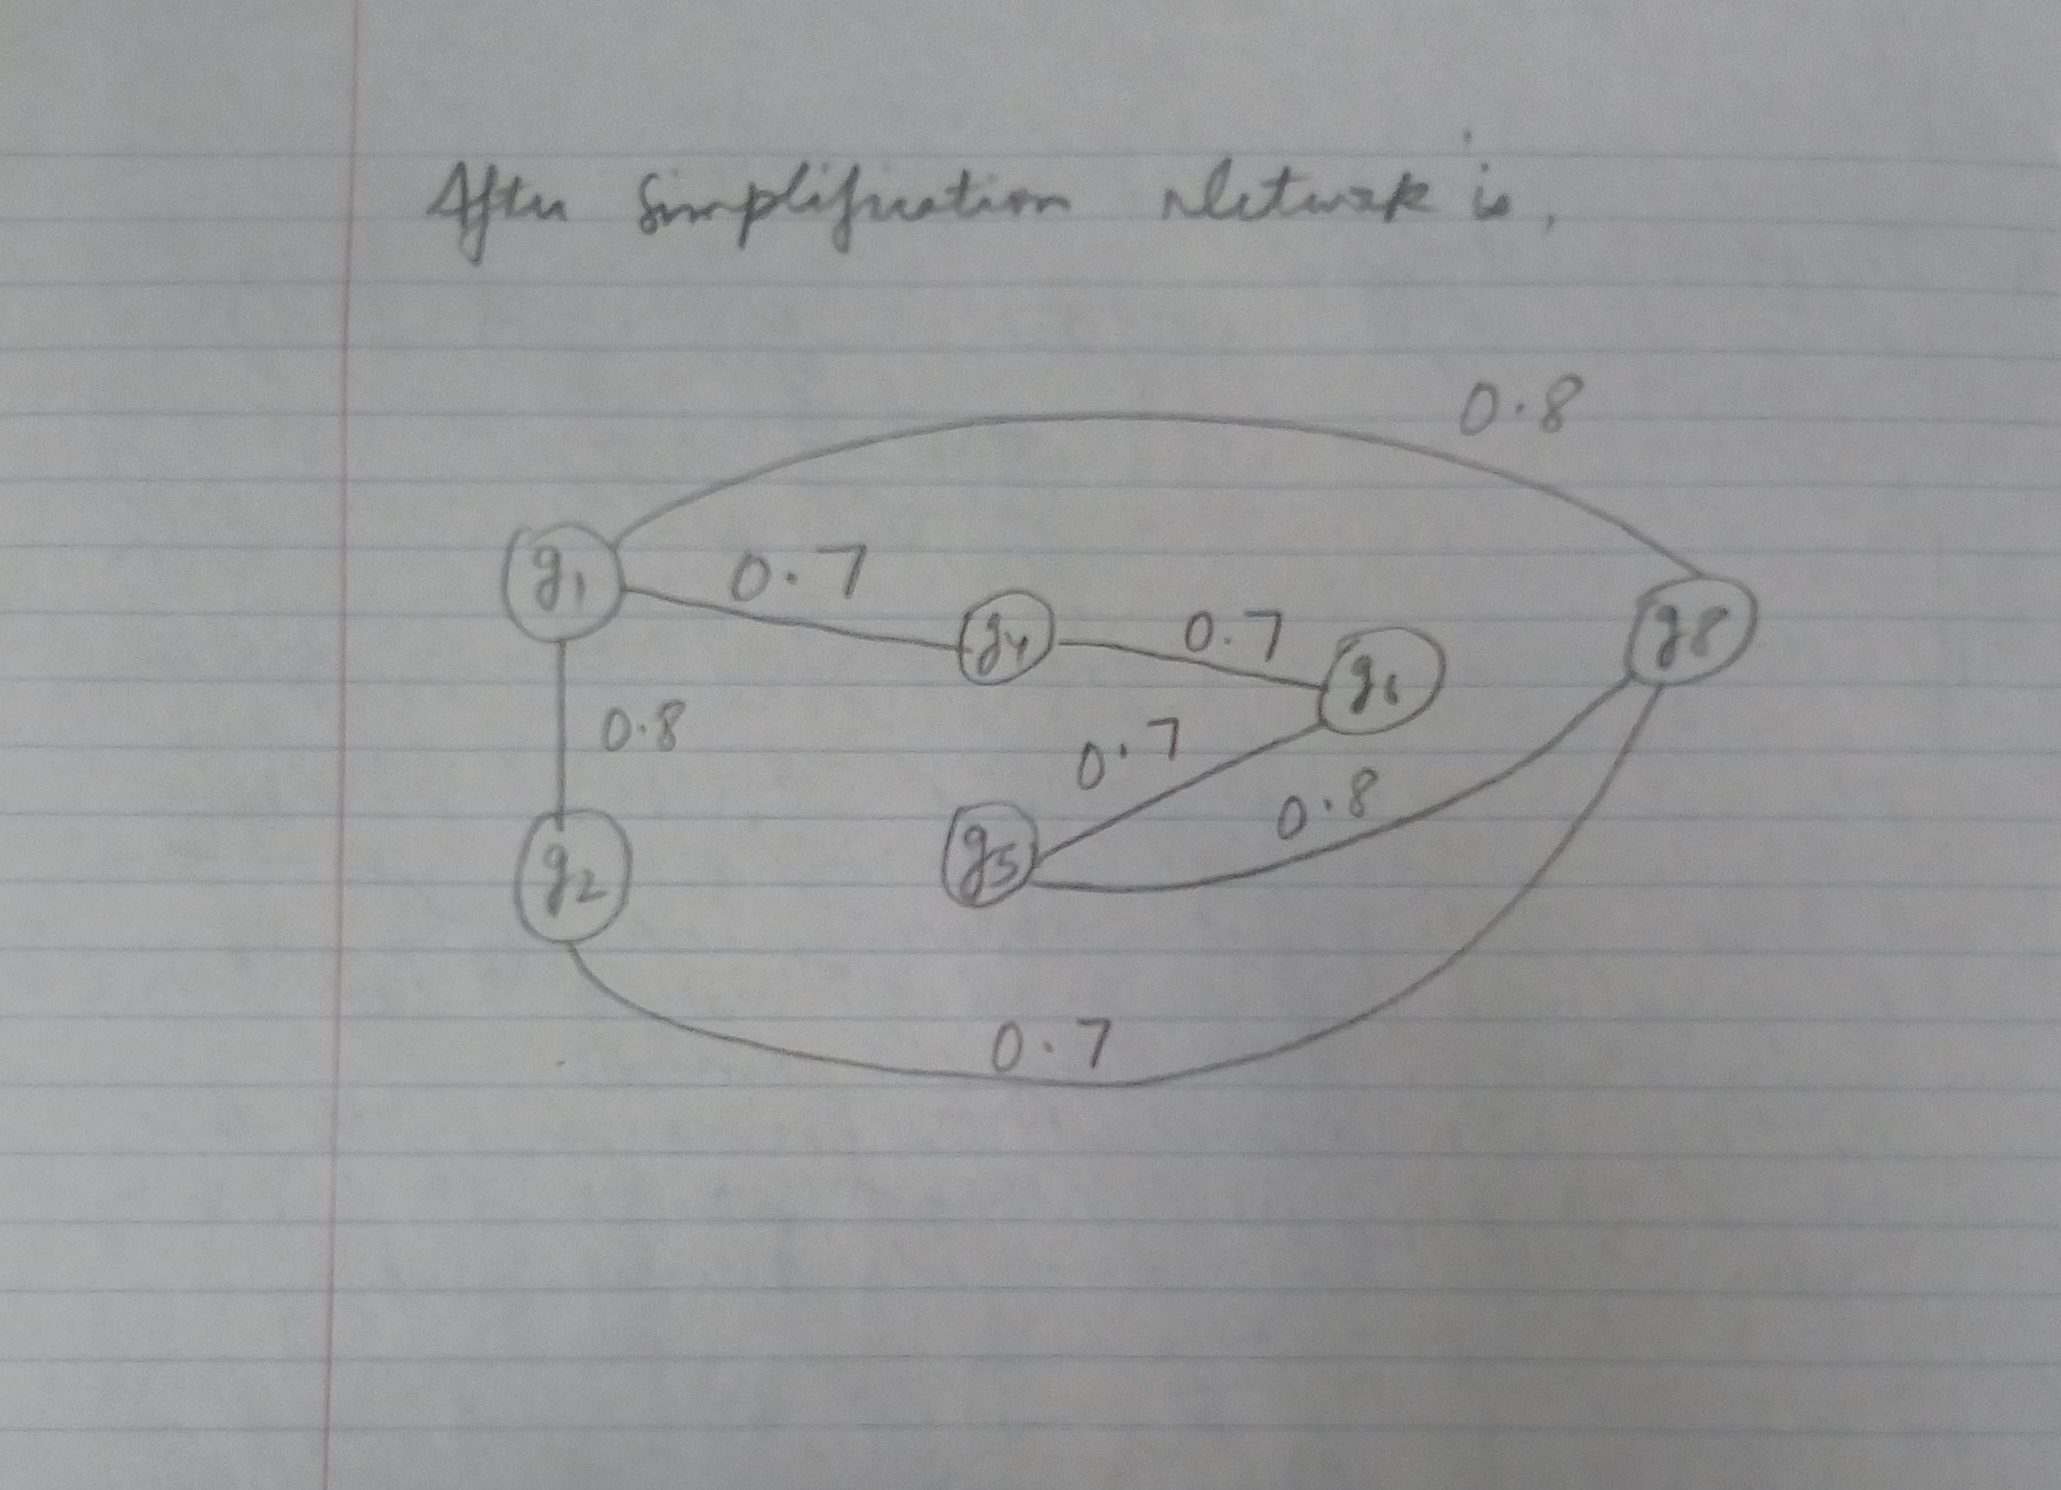 After Simplification Network is,
0.8
g1 0.7 g4 0.7 g6 g8
0.8 0.7 0.8
g2 g5
0.7